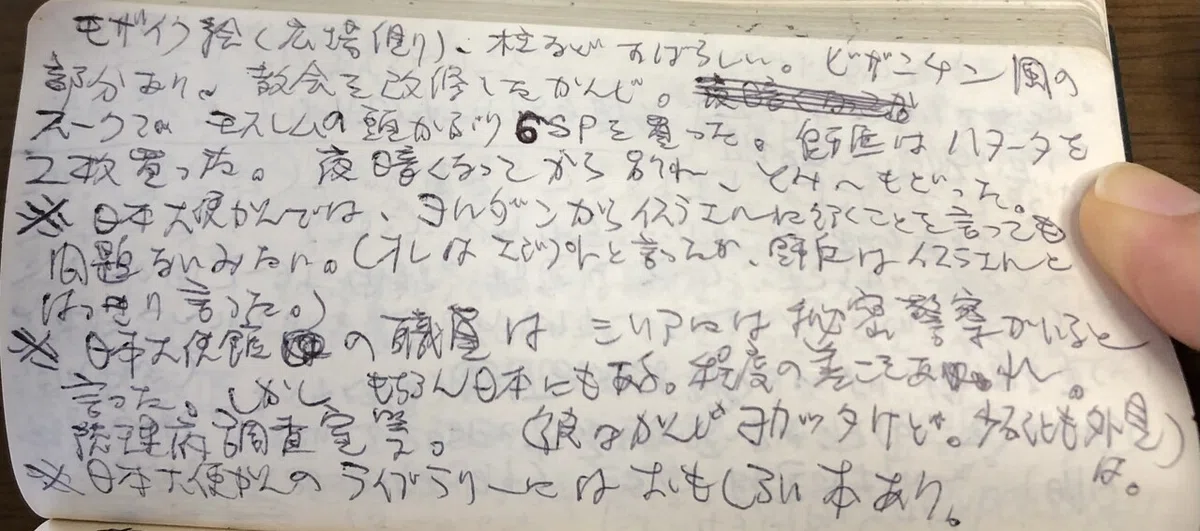 モザイク絵(広場側り)、柱などすばらしい。ビザンチン風の
部分あり。教会を改修したかんじ。
スークでは モスレムの頭かぶり 6SPを買った。野底はハタータを
2枚買った。夜暗くなってから別れ、とみへもどった。
※ 日本大使かんでは、ヨルダンからイスラエルに行くことを言っても
問題ないみたい。(オレはエジプトと言ったが、野底はイスラエルと
はっきり言った。)
※ 日本大使館の職員は シリアには秘密警察がいると
言った。しかし、もちろん日本にもある。程度の差こそあれ。
総理府調査室等。(彼はかんじヨカッタけど。少なくとも外見
は。)
※ 日本大使かんのライブラリーにはおもしろい本あり。